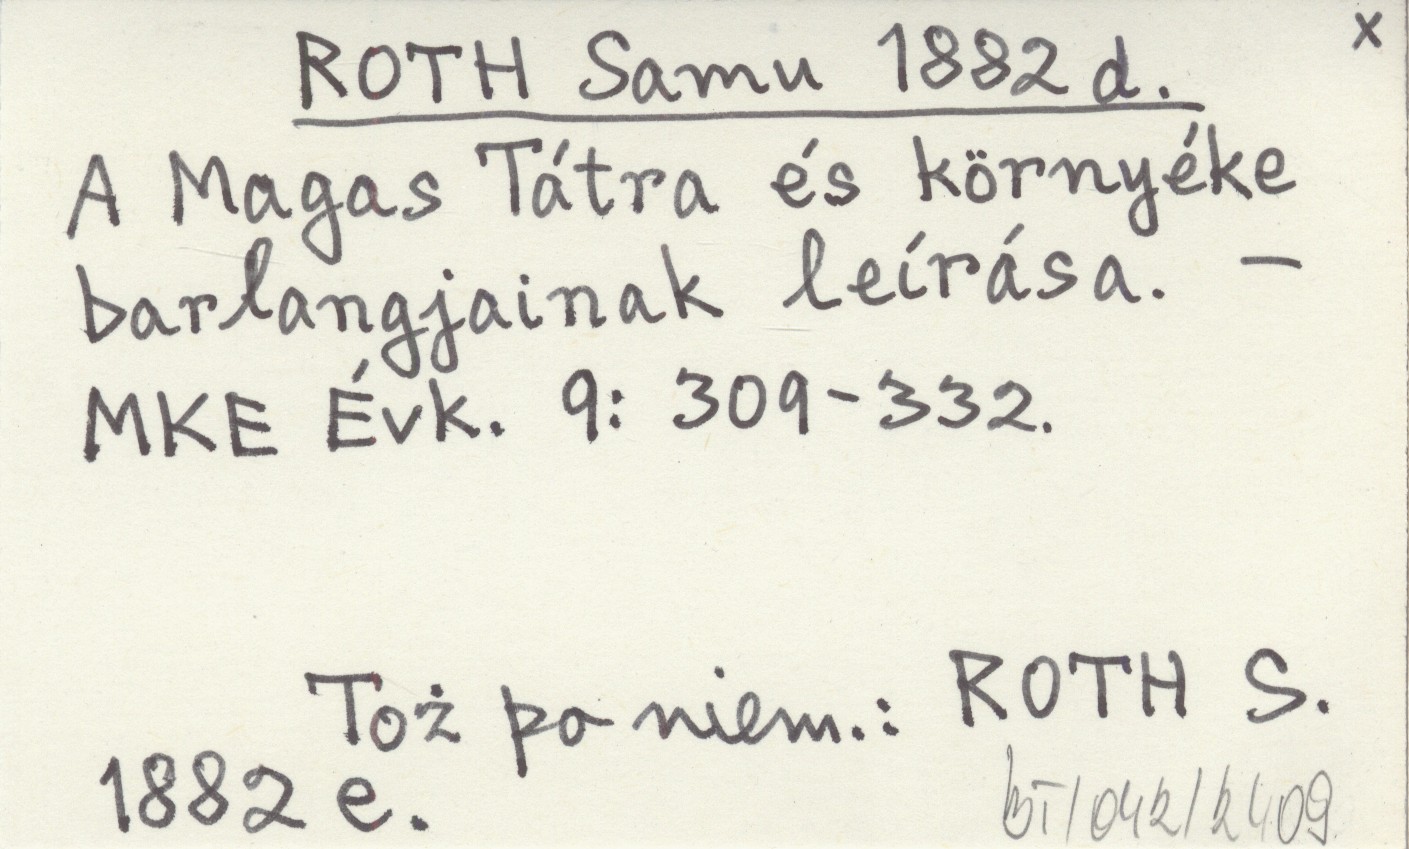 x
ROTH Samu 1882 d.
A Magas Tátra és környéke
barlangjainak leírása. –
MKE Évk. 9: 309-332.
Toż po niem.: ROTH S.
1882 e.
BT/042/2409